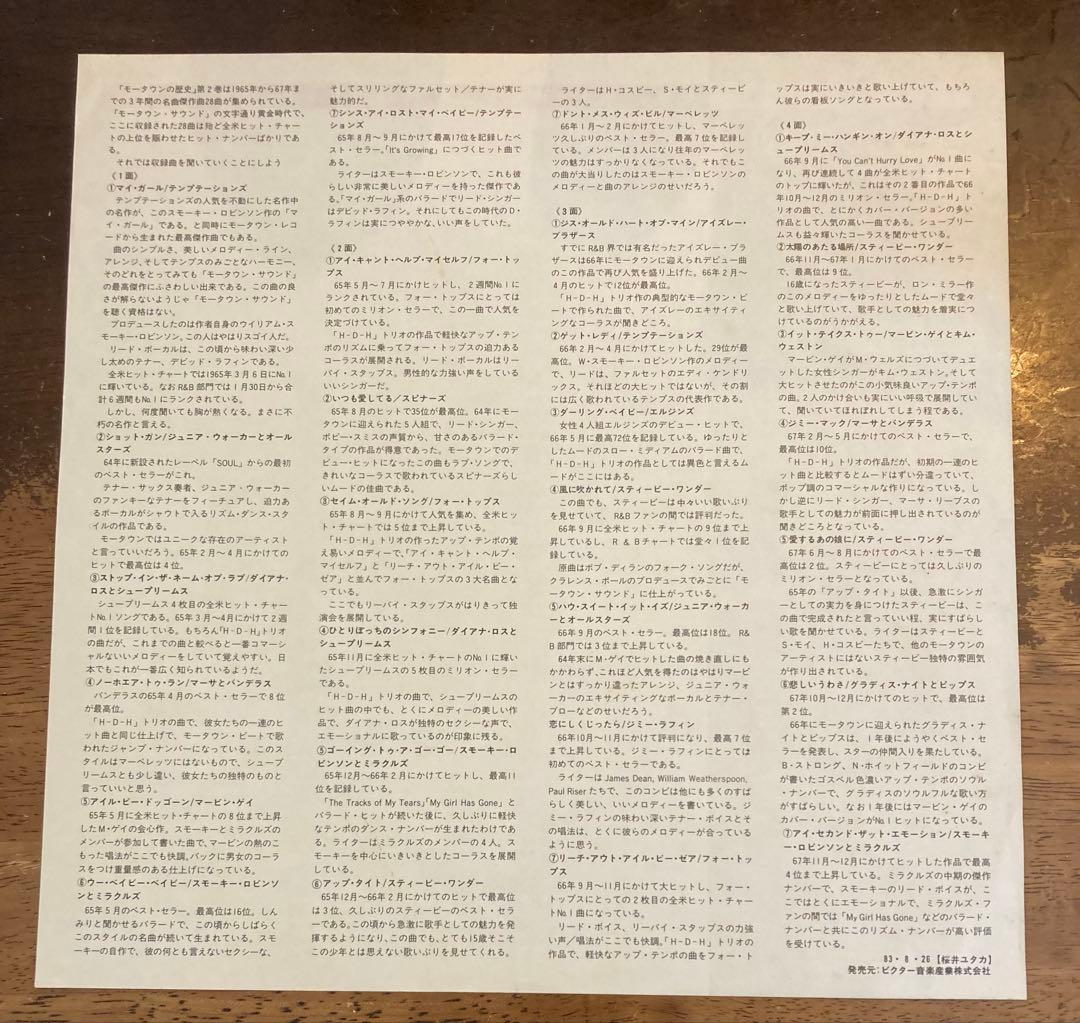 「モータウンの歴史」第2巻は1965年から67年ま
での3年間の名曲傑作曲28曲が集められている。
「モータウン・サウンド」の文字通り黄金時代で、
ここに収録された28曲は殆ど全米ヒット・チャー
トの上位を賑わせたヒット・ナンバーばかりであ
る。
それでは収録曲を聞いていくことにしよう
《1面》
①マイ・ガール/テンプテーションズ
テンプテーションズの人気を不動にした名作中
の名作が、このスモーキー・ロビンソン作の「マ
イ・ガール」である。と同時にモータウン・レコ
ードから生まれた最高傑作曲でもある。
曲のシンプルさ、美しいメロディー・ライン、
アレンジ、そしてテンプスのみごとなハーモニー、
そのどれをとってみても「モータウン・サウンド」
の最高傑作にふさわしい出来である。この曲の良
さが解らないようじゃ「モータウン・サウンド」
を聴く資格はない。
プロデュースしたのは作者自身のウイリアム・ス
モーキー・ロビンソン。この人はやはりスゴイ人だ。
リード・ボーカルは、この頃から味わい深い少
し太めのテナー、デビッド・ラフィンである。
全米ヒット・チャートでは1965年3月6日にNo.1
に輝いている。なおR&B部門では1月30日から合
計6週間もNo.1にランクされている。
しかし、何度聞いても胸が熱くなる。まさに不
朽の名作と言える。
②ショット・ガン/ジュニア・ウォーカーとオール
スターズ
64年に新設されたレーベル「SOUL」からの最初
のベスト・セラーがこれ。
テナー・サックス奏者、ジュニア・ウォーカー
のファンキーなテナーをフィーチュアし、迫力あ
るボーカルがシャウトで入るリズム・ダンス・スタ
イルの作品である。
モータウンではユニークな存在のアーティスト
と言っていいだろう。65年2月~4月にかけての
ヒットで最高位は4位。
③ストップ・イン・ザ・ネーム・オブ・ラブ/ダイアナ・
ロスとシュープリームス
シュープリームス4枚目の全米ヒット・チャー
トNo.1ソングである。65年3月~4月にかけて2週
間1位を記録している。もちろん「H-D-H」トリオ
の曲だが、これまでの曲と較べると一番コマーシ
ャルないいメロディーをしていて覚えやすい。日
本でもこれが一番広く知られているようだ。
④ノーホエア・トゥ・ラン/マーサとバンデラス
バンデラスの65年4月のベスト・セラーで8位
が最高位。
「H-D-H」トリオの曲で、彼女たちの一連のヒ
ット曲と同じ仕上げで、モータウン・ビートで歌
われたジャンプ・ナンバーになっている。このス
タイルはマーベレッツにはないもので、シュープ
リームスとも少し違い、彼女たちの独特のものと
言っていいと思う。
⑤アイル・ビー・ドッゴーン/マービン・ゲイ
65年5月に全米ヒット・チャーの8位まで上昇
したM・ゲイの会心作。スモーキーとミラクルズの
メンバーが参加して書いた曲で、マービンの熱のこ
もった唱法がここでも快調。バックに男女のコーラ
スをつけ重量感のある仕上げになっている。
⑥ウー・ベイビー・ベイビー/スモーキー・ロビンソ
ンとミラクルズ
65年5月のベスト・セラー。最高位は16位。しん
みりと聞かせるバラードで、この頃からしばらく
このスタイルの名曲が続いて生まれている。スモ
ーキーの自作で、彼の何とも言えないセクシーな、
そしてスリリングなファルセット/テナーが実に
魅力的だ。
⑦シンス・アイ・ロスト・マイ・ベイビー/テンプテー
ションズ
65年8月~9月にかけて最高17位を記録したベ
スト・セラー。「It's Growing」につづくヒット曲で
ある。
ライターはスモーキー・ロビンソンで、これも彼
らしい非常に美しいメロディーを持った傑作であ
る。「マイ・ガール」系のバラードでリード・シンガー
はデビッド・ラフィン。それにしてもこの時代のD・
ラフィンは実につややかな、いい声をしていた。
《2面》
①アイ・キャント・ヘルプ・マイセルフ/フォー・トッ
プス
65年5月~7月にかけヒットし、2週間No.1に
ランクされている。フォー・トップスにとっては
初めてのミリオン・セラーで、この一曲で人気を
決定づけている。
「H-D-H」トリオの作品で軽快なアップ・テン
ポのリズムに乗ってフォー・トップスの迫力ある
コーラスが展開される。リード・ボーカルはリー
バイ・スタップス。男性的な力強い声をしている
いいシンガーだ。
②いつも愛してる/スピナーズ
65年8月のヒットで35位が最高位。64年にモー
タウンに迎えられた5人組で、リード・シンガー、
ボビー・スミスの声質から、甘さのあるバラード・
タイプの作品が得意であった。モータウンでのデ
ビュー・ヒットになったこの曲もラブ・ソングで、
きれいなコーラスで歌われているスピナーズらし
いムードの佳曲である。
③セイム・オールド・ソング/フォー・トップス
65年8月~9月にかけて人気を集め、全米ヒッ
ト・チャートでは5位まで上昇している。
「H-D-H」トリオの作ったアップ・テンポの覚
え易いメロディーで、「アイ・キャント・ヘルプ・
マイセルフ」と「リーチ・アウト・アイル・ビー・
ゼア」と並んでフォー・トップスの3大名曲となっ
ている。
ここでもリーバイ・スタップスがはりきって独演
会を展開している。
④ひとりぼっちのシンフォニー/ダイアナ・ロスと
シュープリームス
65年11月に全米ヒット・チャートのNo.1に輝い
たシュープリームスの5枚目のミリオン・セラー
である。
「H-D-H」トリオの曲で、シュープリームスの
ヒット曲の中でも、とくにメロディーの美しい作
品で、ダイアナ・ロスが独特のセクシーな声で、
エモーショナルに歌っているのが印象に残る。
⑤ゴーイング・トゥ・ア・ゴー・ゴー/スモーキー・ロ
ビンソンとミラクルズ
65年12月~66年2月にかけてヒットし、最高11
位を記録している。
「The Tracks of My Tears」「My Girl Has Gone」と
バラード・ヒットが続いた後に、久しぶりに軽快
なテンポのダンス・ナンバーが生まれたわけであ
る。ライターはミラクルズのメンバーの4人。ス
モーキーを中心にいきいきとしたコーラスを展開
している。
⑥アップ・タイト/スティービー・ワンダー
65年12月~66年2月にかけてのヒットで最高位
は3位、久しぶりのスティービーのベスト・セラ
ーである。この頃から急激に歌手としての魅力を発
揮するようになり、この曲でも、とても15歳そこそ
この少年とは思えない歌いぶりを見せてくれる。
ライターはH・コスビー、S・モイとスティービ
ーの3人。
⑦ドント・メス・ウィズ・ビル/マーベレッツ
66年1月~2月にかけてヒットし、マーベレッ
ツ久しぶりのベスト・セラー。最高7位を記録し
ている。メンバーは3人になり往年のマーベレッ
ツの魅力はすっかりなくなっている。それでもこ
の曲が大当りしたのはスモーキー・ロビンソンの
メロディーと曲のアレンジのせいだろう。
《3面》
①ジス・オールド・ハート・オブ・マイン/アイズレー・
ブラザース
すでにR&B界では有名だったアイズレー・ブラ
ザースは66年にモータウンに迎えられデビュー曲
のこの作品で再び人気を盛り上げた。66年2月~
4月のヒットで12位が最高位。
「H-D-H」トリオ作の典型的なモータウン・ビ
ートで作られた曲で、アイズレーのエキサイティ
ングなコーラスが聞きどころ。
②ゲット・レディ/テンプテーションズ
66年2月~4月にかけてヒットした。29位が最
高位。W・スモーキー・ロビンソン作のメロディー
で、リードは、ファルセットのエディ・ケンドリ
ックス。それほどの大ヒットではないが、その割
には広く歌われているテンプスの代表作である。
③ダーリング・ベイビー/エルジンズ
女性4人組エルジンズのデビュー・ヒットで、
66年5月に最高72位を記録している。ゆったりと
したムードのスロー・ミディアムのバラード曲で、
「H-D-H」トリオの作品としては異色と言えるムー
ドがここにはある。
④風に吹かれて/スティービー・ワンダー
この曲でも、スティービーは中々いい歌いぶり
を見せていて、R&Bファンの間では評判だった。
66年9月に全米ヒット・チャートの9位まで上
昇しているし、R&Bチャートでは堂々1位を記
録している。
原曲はボブ・ディランのフォーク・ソングだが、
クラレンス・ポールのプロデュースでみごとに「モ
ータウン・サウンド」に仕上がっている。
⑤ハウ・スイート・イット・イズ/ジュニア・ウォーカ
ーとオールスターズ
66年9月のベスト・セラー。最高位は18位。R&
B部門では3位まで上昇している。
64年末にM・ゲイでヒットした曲の焼き直しにも
かかわらず、これほど人気を得たのはやはりマービ
ンとはすっかり違ったアレンジ、ジュニア・ウォ
ーカーのエキサイティングなボーカルとテナー・
ブローなどのせいだろう。
恋にしくじったら/ジミー・ラフィン
66年10月~11月にかけて評判になり、最高7位
まで上昇している。ジミー・ラフィンにとっては
初めてのベスト・セラーである。
ライターはJames Dean, William Weatherspoon,
Paul Riserたちで、このコンビは他にも多くのすば
らしく美しい、いいメロディーを書いている。ジ
ミー・ラフィンの味わい深いテナー・ボイスとそ
の唱法は、とくに彼らのメロディーが合っている
ように思う。
⑦リーチ・アウト・アイル・ビー・ゼア/フォー・トッ
プス
66年9月~11月にかけて大ヒットし、フォー・
トップスにとっての2枚目の全米ヒット・チャー
トNo.1曲になっている。
リード・ボイス、リーバイ・スタップスの力強
い声/唱法がここでも快調。「H-D-H」トリオの
作品で、軽快なアップ・テンポの曲をフォー・ト
ップスは実にいきいきと歌い上げていて、もちろ
ん彼らの看板ソングとなっている。
《4面》
①キープ・ミー・ハンギン・オン/ダイアナ・ロスとシ
ュープリームス
66年9月に「You Can't Hurry Love」がNo.1曲に
なり、再び連続して4曲が全米ヒット・チャート
のトップに輝いたが、これはその2番目の作品で66
年10月~12月のミリオン・セラー。「H-D-H」ト
リオの曲で、とにかくカバー・バージョンの多い
作品として人気の高い一曲である。シュープリー
ムスも益々輝いたコーラスを聞かせている。
②太陽のあたる場所/スティービー・ワンダー
66年11月~67年1月にかけてのベスト・セラー
で、最高位は9位。
16歳になったスティービーが、ロン・ミラー作
のこのメロディーをゆったりとしたムードで堂々
と歌い上げていて、歌手としての魅力を着実につ
けているのがうかがえる。
③イット・テイクス・トゥー/マービン・ゲイとキム・
ウェストン
マービン・ゲイがM・ウェルズにつづいてデュエ
ットした女性シンガーがキム・ウェストン。そして
大ヒットさせたのがこの小気味良いアップ・テンポ
の曲。2人のかけ合いも実にいい呼吸で展開してい
て、聞いていてほれぼれしてしまう程である。
④ジミー・マック/マーサとバンデラス
67年2月~5月にかけてのベスト・セラーで、
最高位は10位。
「H-D-H」トリオの作品だが、初期の一連のヒ
ット曲と比較するとムードはずい分違っていて、
ポップ調のコマーシャルな作りになっている。し
かし逆にリード・シンガー、マーサ・リーブスの
歌手としての魅力が前面に押し出されているのが
聞きどころとなっている。
⑤愛するあの娘に/スティービー・ワンダー
67年6月~8月にかけてのベスト・セラーで最
高位は2位。スティービーにとっては久しぶりの
ミリオン・セラーとなっている。
65年の「アップ・タイト」以後、急激にシンガ
ーとしての実力を身につけたスティービーは、こ
の曲で完成されたと言っていい程、実にすばらし
い歌を聞かせている。ライターはスティービーと
S・モイ、H・コスビーたちで、他のモータウンの
アーティストにはないスティービー独特の雰囲気
が作り出されている。
⑥悲しいうわさ/グラディス・ナイトとピップス
67年10月~12月にかけてのヒットで、最高位は
第2位。
66年にモータウンに迎えられたグラディス・ナ
イトとピップスは、1年後にようやくベスト・セ
ラーを発表し、スターの仲間入りを果たしている。
B・ストロング、N・ホイットフィールドのコンビ
が書いたゴスペル色濃いアップ・テンポのソウル・
ナンバーで、グラディスのソウルフルな歌い方
がすばらしい。なお1年後にはマービン・ゲイの
カバー・バージョンがNo.1ヒットになっている。
⑦アイ・セカンド・ザット・エモーション/スモーキ
ー・ロビンソンとミラクルズ
67年11月~12月にかけてヒットした作品で最高
4位まで上昇している。ミラクルズの中期の傑作
ナンバーで、スモーキーのリード・ボイスが、こ
こではとくにエモーショナルで、ミラクルズ・フ
ァンの間では「My Girl Has Gone」などのバラード・
ナンバーと共にこのリズム・ナンバーが高い評価
を受けている。
83・8・26【桜井ユタカ】
発売元:ビクター音楽産業株式会社